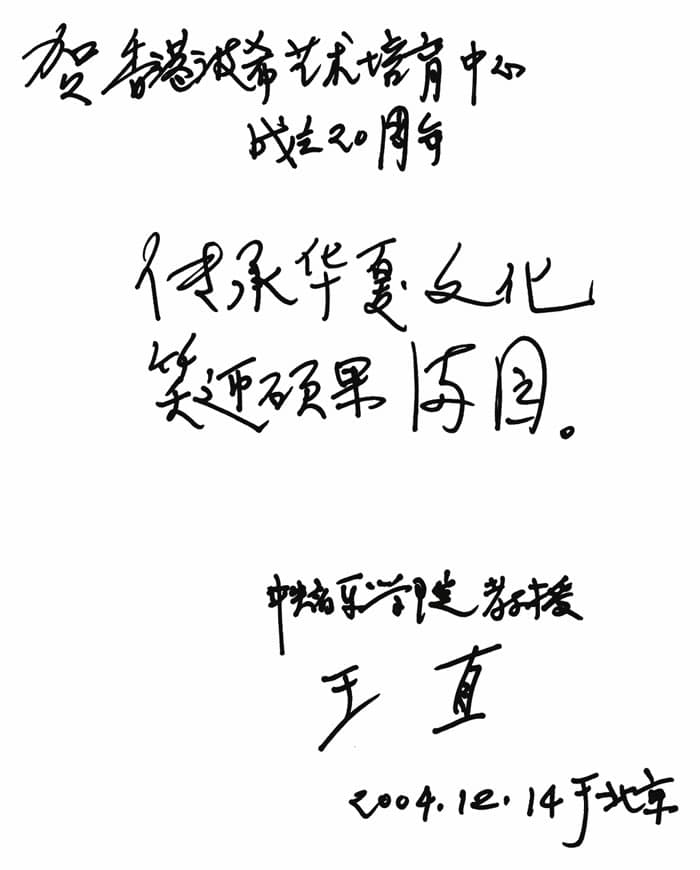 贺香港波希艺术培育中心
成立20周年
传承华夏文化
笑迎硕果满园。
中央音乐学院教授
王直
2004.12.14于北京